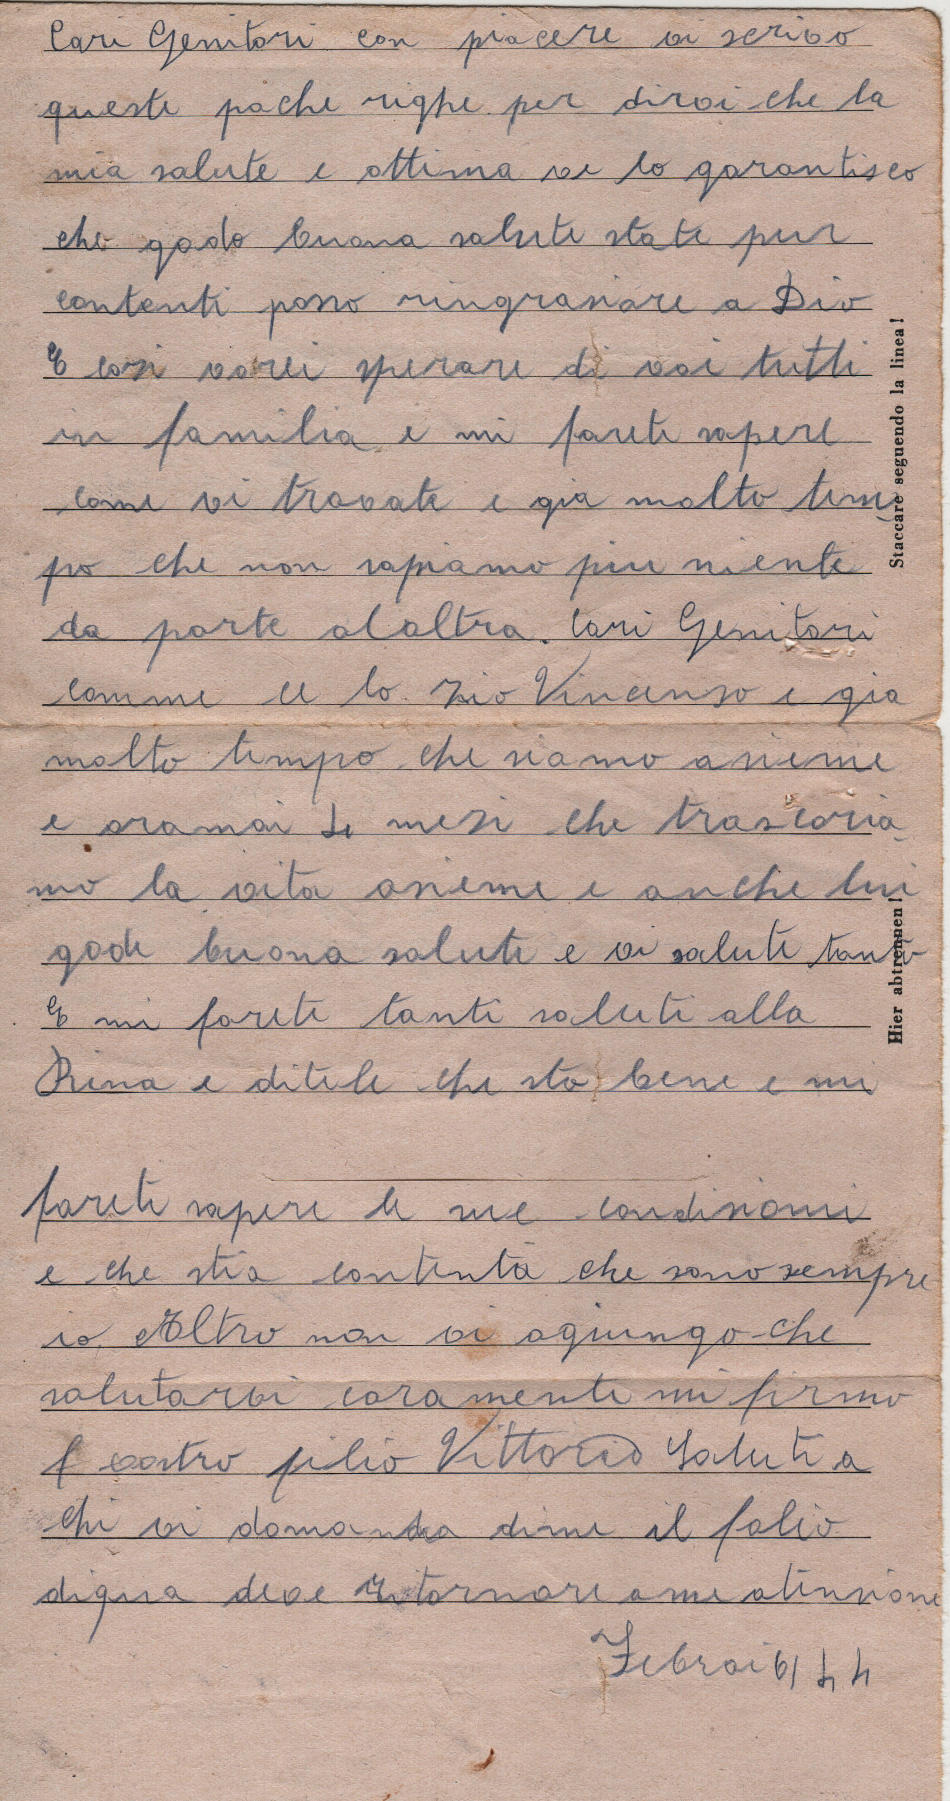 Cari Genitori con piacere vi scrivo
queste poche righe per dirvi che la
mia salute e ottima ve lo garantisco
che godo buona salute state pur
contenti posso ringrasiare a Dio
E cosi vorei sperare di voi tutti
in familia e mi farete sapere
come vi trovate e gia molto tem
po che non sapiamo piu niente
da parte al altra. Cari Genitori
comme ce lo Zio Vincenso e gia
molto tempo che siamo asieme
e oramai 4 mesi che trascoria
mo la vita asieme e anche lui
gode buona salute e vi salute tanto
E mi farete tanti saluti alla
Rina e ditele che sto bene e mi
farete sapere le mie condisioni
e che stia contenta che sono sempre
io. Altro non vi agiungo che
salutarvi caramente mi firmo
f vostro filio Vittorio Saluti a
chi vi domanda dime il folio
digua deve Ritornare a me atensione
Febraio 1944
Staccare seguendo la linea!
Hier abtrennen!